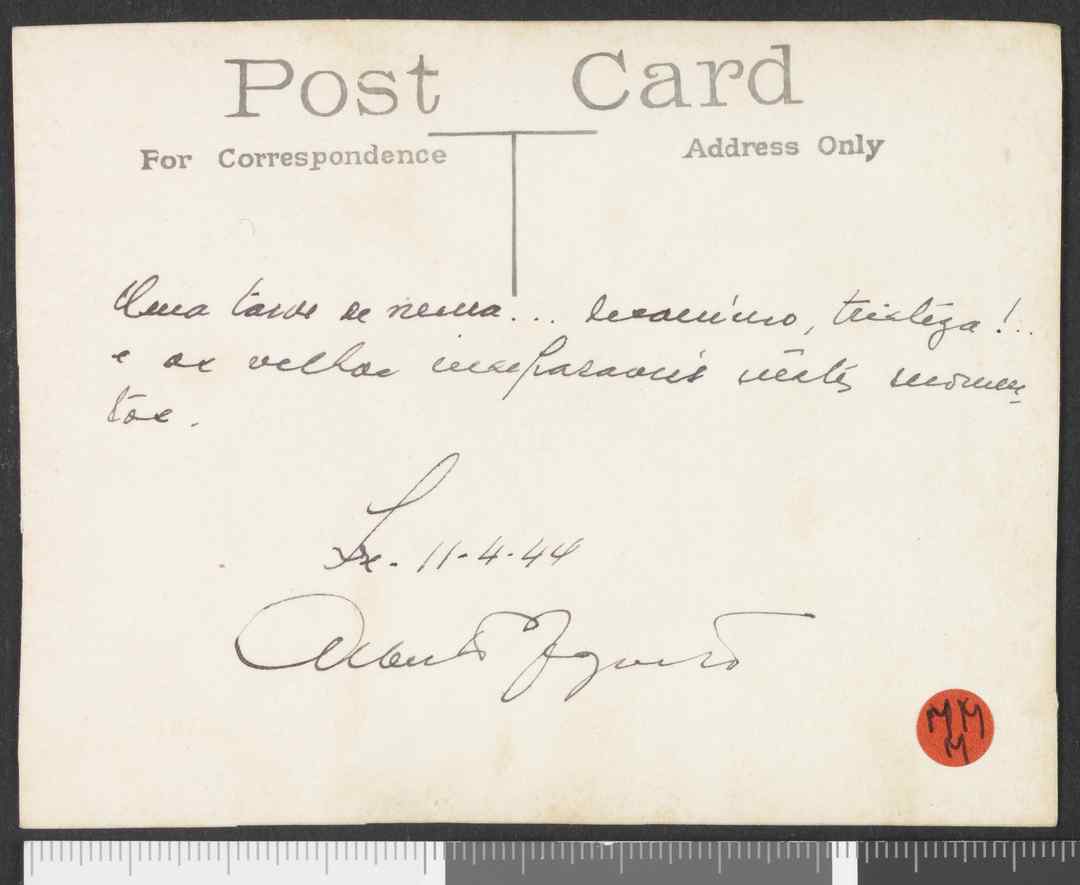 Post Card
For Correspondence
Address Only
Uma tarde de neura... desanimo, tristeza!...
e os velhos inseparaveis nestes momen-
tos.
Lx. 11-4-44
Alberto